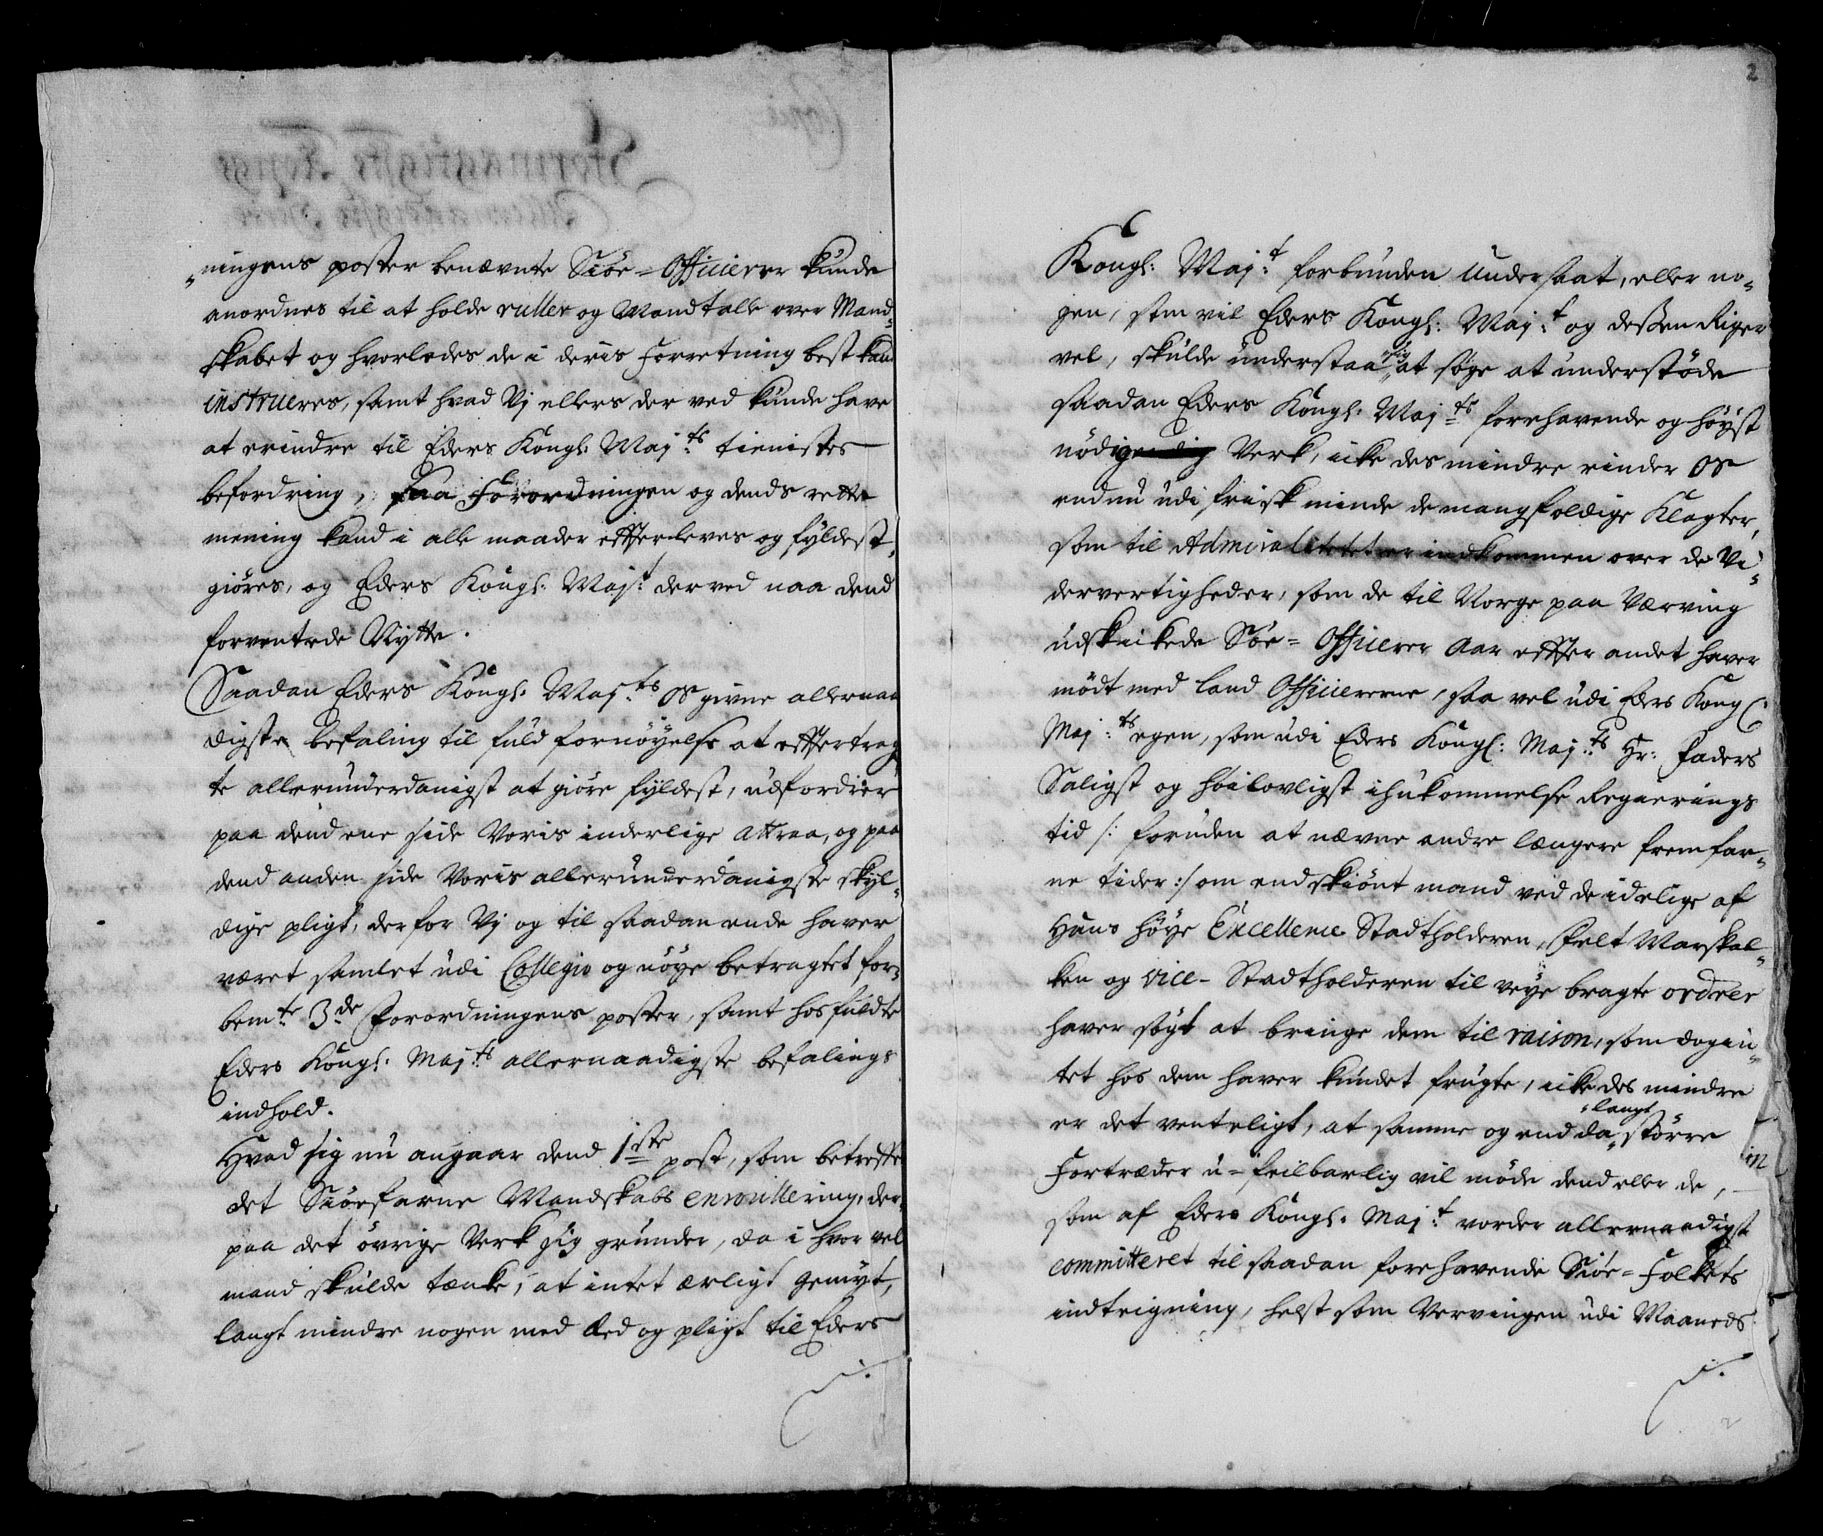 ningens poster benævnte Siöe-Officierer kunde
anordnes til at holde ruller og Mandtalle over Mand-
skabet og hvorledes de i deris Forretning best kand
instrueres, samt hvad Vj ellers der ved kunde have
at erindre til Eders Kongl: Maj:ts tienistes
befordring, paa Forordningen og dends rette
mening kand i alle maader effterleves og fyldest-
giöres, og Eders Kongl: Maj:t derved naa dend
forventede Nytte.
Saadan Eders Kongl: Maj:ts os givne allernaa
digste befaling til fuld fornöyelse at effter trag
te allerunderdanigst at giöre fyldest, udfordrer
paa dend ene side Voris inderlige attraa, og paa
dend anden side Voris allerunderdanigste skyl-
dige pligt, derfor Vj og til saadan ende haver
været samlet udi Collegio og nöye betragtet for-
bem:te 3de Forordningens poster, samt hosfuldte
Eders Kongl: Maj:ts allernaadigste befalings
indhold.
Hvad sig nu angaar dend 1ste post, som betreffe
det Siöefarne Mandskabs enroullering, der-
paa det övrige Verk sig grunder, da i hvor vel
mand skulde tænke, at intet ærligt gemyt,
langt mindre nogen med Eed og pligt til Eders
2
Kongl: Maj:t forbunden Undersaat, eller no-
gen, som vil Eders Kongl: Maj:t og deßen Riger
vel, skulde understaa sig at söge at understöde
saadan Eders Kongl: Maj:ts forehavende og höyst
nödige Verk, icke des mindre rinder os
endnu udi frisk minde de mangfoldige Klagter,
som til Admiralitetet er indkommen over de Vi-
dervertigheder, som de til Norge paa Værving
udskickede Söe-Officerer Aar effter andet haver
mödt med land Officiererne, saa vel udi Eders Kongl:
Maj:ts egen, som udi Eders Kongl: Maj:ts Hr: Faders
Saligst og höilovligst ihukommelse Regierings
tid /: foruden at nævne andre længere fremfar-
ne tider :/ om endskiönt mand ved de idelige af
Hans höye Excellence Stadtholderen, Felt Marskal-
ken og vice-Stadtholderen til veye bragte ordrer
haver sögt at bringe dem til raison, som dog in-
tet hos dem haver kundet frugte, icke des mindre
er det venteligt, at samme og end da langt större
Fortræder u-feilbarlig vil möde dend eller de,
som af Eders Kongl: Maj:t vorder allernaadigst
committeret til saadan forehavende Siöe-Folkets
indteigning, helst som Vervingen udi Maaneds